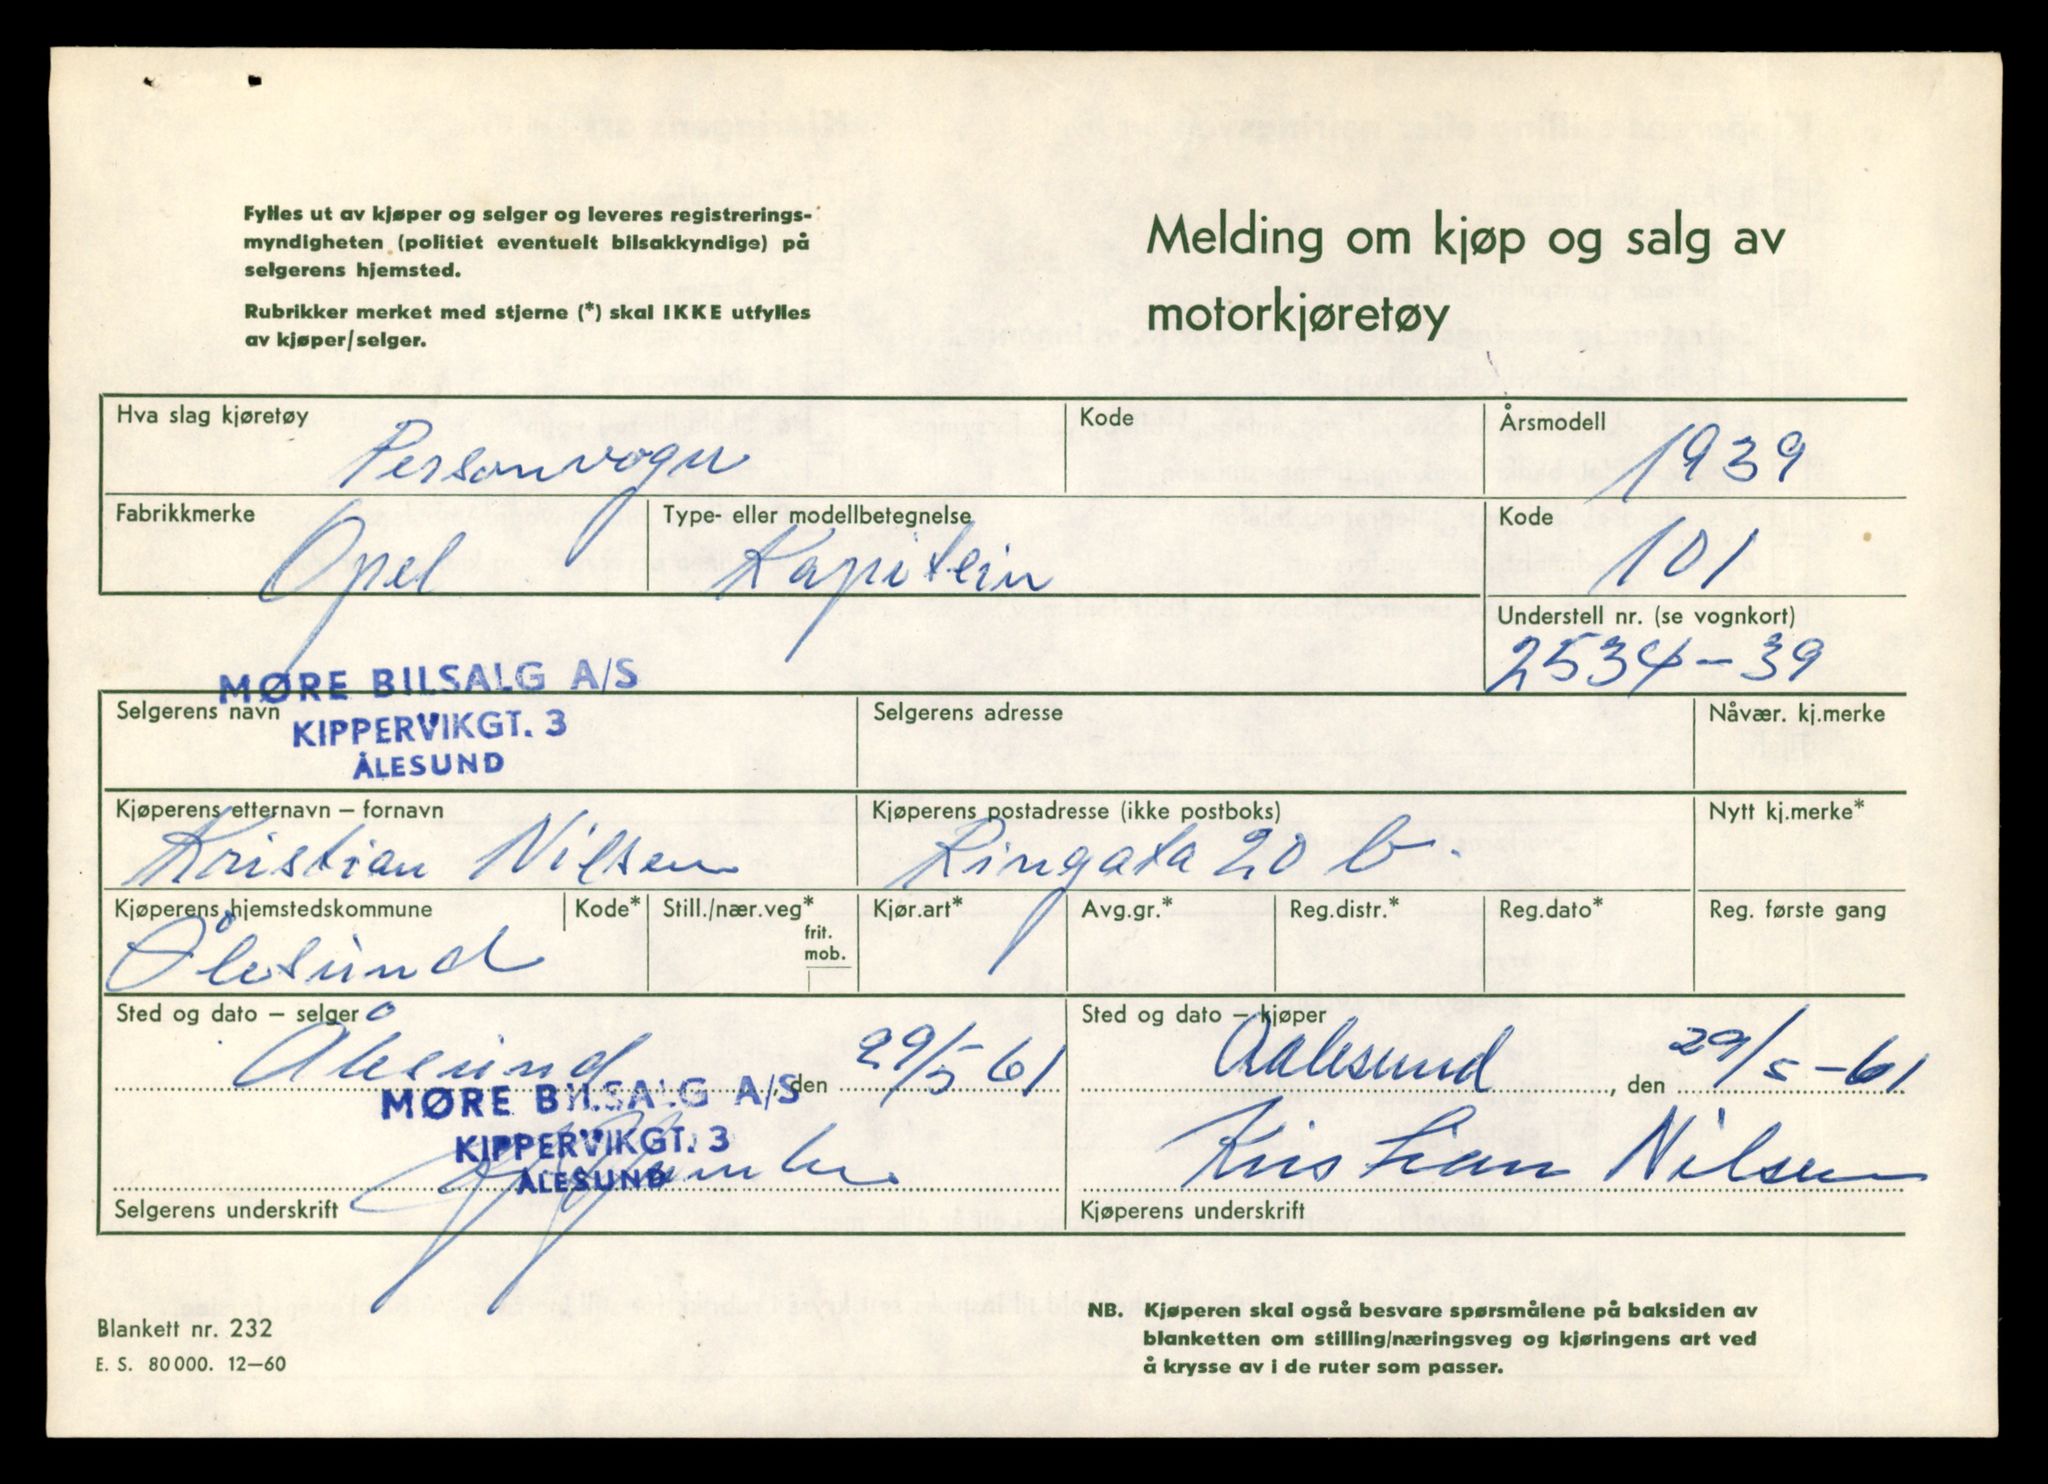 Fylles ut av kjøper og selger og leveres registrerings-
myndigheten (politiet eventuelt bilsakkyndige) på
selgerens hjemsted.
Rubrikker merket med stjerne (*) skal IKKE utfylles
av kjøper/selger.
Melding om kjøp og salg av
motorkjøretøy
Hva slag kjøretøy
Personvogn
Kode
Årsmodell
1939
Fabrikkmerke
Opel
Type- eller modellbetegnelse
Kapitein
Kode
101
Understell nr. (se vognkort)
2534-39
MØRE BILSALG A/S
KIPPERVIKGT. 3
ÅLESUND
Selgerens navn
Selgerens adresse
Nåvær. kj.merke
Kjøperens etternavn – fornavn
Kristian Nilsen
Kjøperens postadresse (ikke postboks)
Ringata 20 b.
Nytt kj.merke*
Kjøperens hjemstedskommune
Ålesund
Kode*
Still./nær.veg*
frit.
mob.
Kjør.art*
Avg.gr.*
Reg.distr.*
Reg.dato*
Reg. første gang
Sted og dato – selger
Ålesund , den 29/5-61
MØRE BILSALG A/S
KIPPERVIKGT. 3
ÅLESUND
Selgerens underskrift
Sted og dato – kjøper
Aalesund , den 29/5-61
Kristian Nilsen
Kjøperens underskrift
Blankett nr. 232
E. S. 80 000. 12–60
NB. Kjøperen skal også besvare spørsmålene på baksiden av
blanketten om stilling/næringsveg og kjøringens art ved
å krysse av i de ruter som passer.